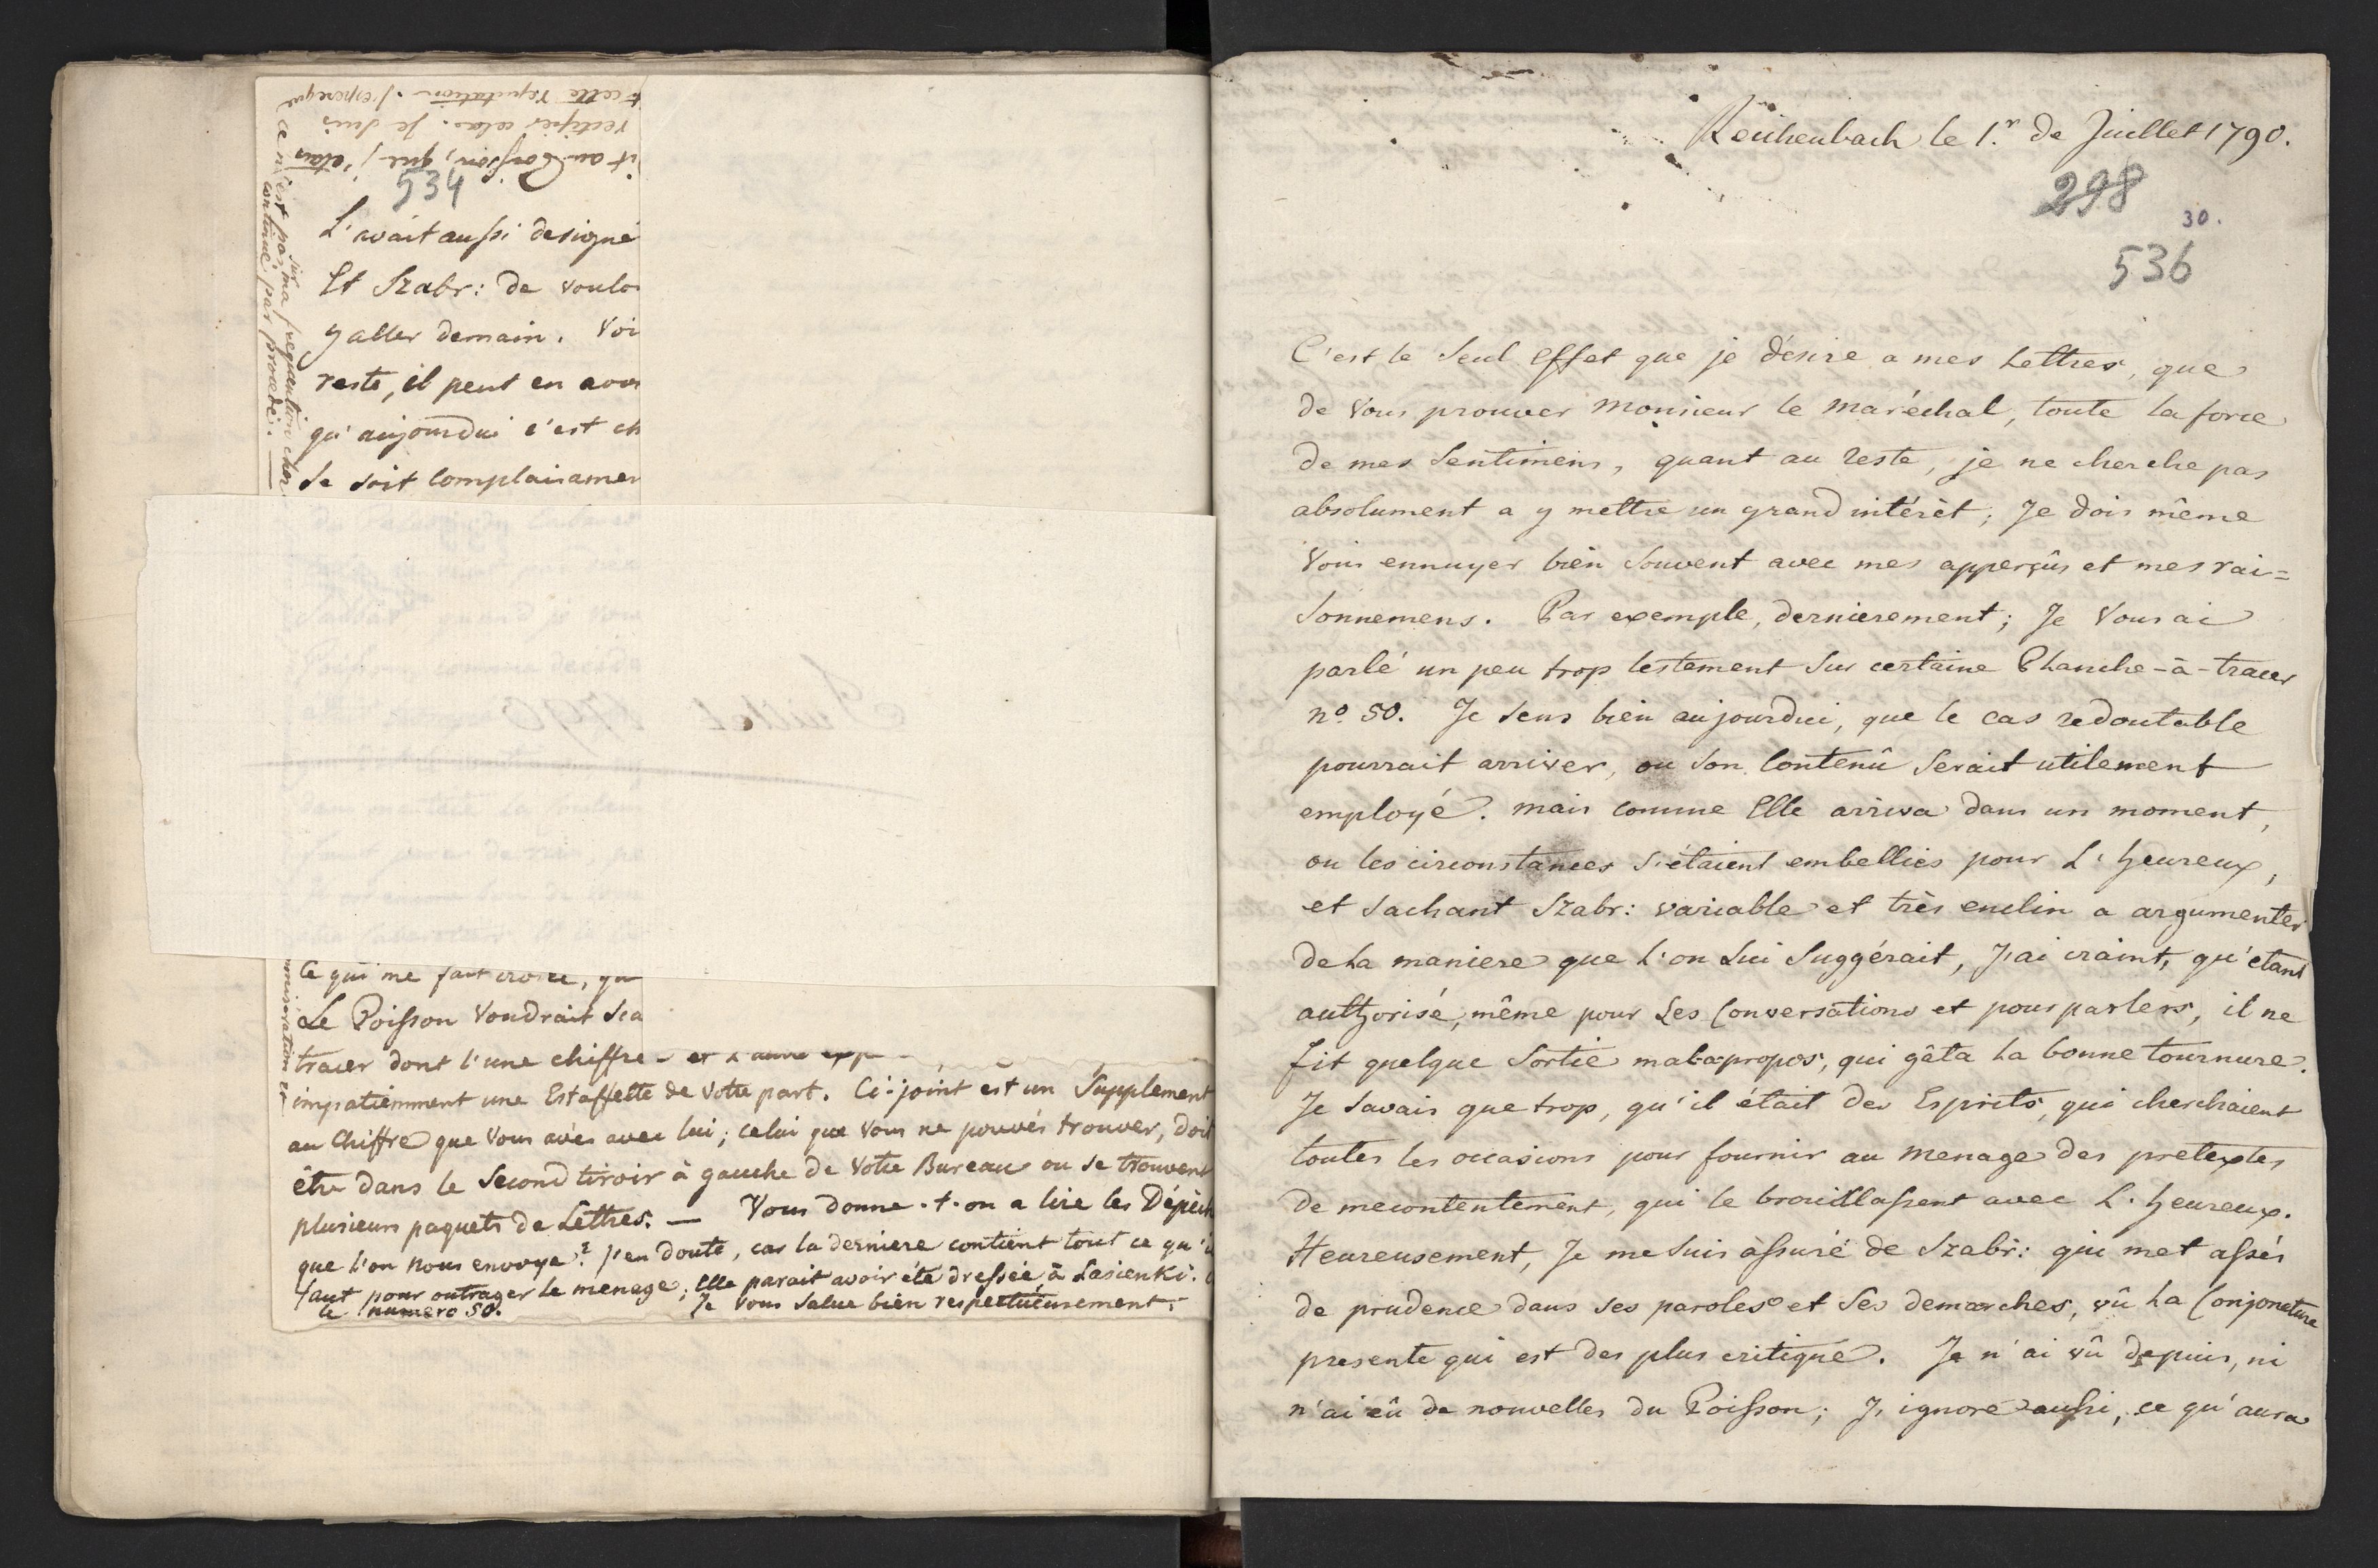 + cette reputation. J'espere que
rectifier cela. Je suis
it au Poisson, que j'etais
ce n'est pas sur ma frequention cher
continue, par procedé. —
534
L'avait aussi designé
Et Szabr: de voulo
y aller demain. Voi
reste, il peut en avoi
qu'aujourdui c'est ch
Se soit complaisamen
Juillet 1790
ce qui me fait croire, qu
Le Poisson voudrait Sca
tracer dont l'une chiffre
impatiemment une Estaffette de votre part. Ci-joint est un Supplement
au Chiffre que vous avés avec lui; celui que vous ne pouvés trouver, doit
être dans le Second tiroir à gauche de votre Bureau ou se trouvent
plusieurs paquets de Lettres. — Vous donne-t-on a lire les Dépêch
que l'on nous envoye? j'en doute, car la derniere contient tout ce qu'i
faut pour outrager le menage; Elle parait avoir été dressée à Lasienki.
le numero 50. Je vous salue bien respectueusement.
Reichenbach le 1.r de Juillet 1790.
298
30.
536
C'est le Seul Effet que je désire a mes Lettres, que
de Vous prouver Monsieur le Maréchal, toute la force
de mes Sentimens, quant au reste, je ne cherche pas
absolument a y mettre un grand intérèt; Je dois même
Vous ennuyer bien Souvent avec mes apperçûs et mes rai=
sonnemens. Par exemple, dernierement; Je Vous ai
parlé un peu trop lestement Sur certaine Planche-à-tracer
nº 50. Je Sens bien aujourdui, que le cas redoutable
pourrait arriver, ou Son Contenû Serait utilement
employé. Mais comme Elle arriva dans un moment,
ou les circonstances s'étaient embellies pour L'heureux,
et Sachant Szabr: variable et très enclin a argumenter
de la maniere que l'on Lui Suggérait, J'ai craint, qu'étant
authorisé, même pour Les Conversations et pourparlers, il ne
fit quelque Sortie mal-apropos, qui gâta la bonne tournure.
Je Savais que trop, qu'il était des Esprits, qui cherchaient
toutes les occasions pour fournir au Menage des pretextes
de mecontentement, qui le brouillassent avec L'heureux.
Heureusement, Je me Suis assuré de Szabr: qui met assés
de prudence dans ses paroles et Ses demarches, vû la Conjoncture
presente qui est des plus critique. Je n'ai vû depuis, ni
n'ai eû de nouvelles du Poisson; J'ignore aussi, ce qu'aura